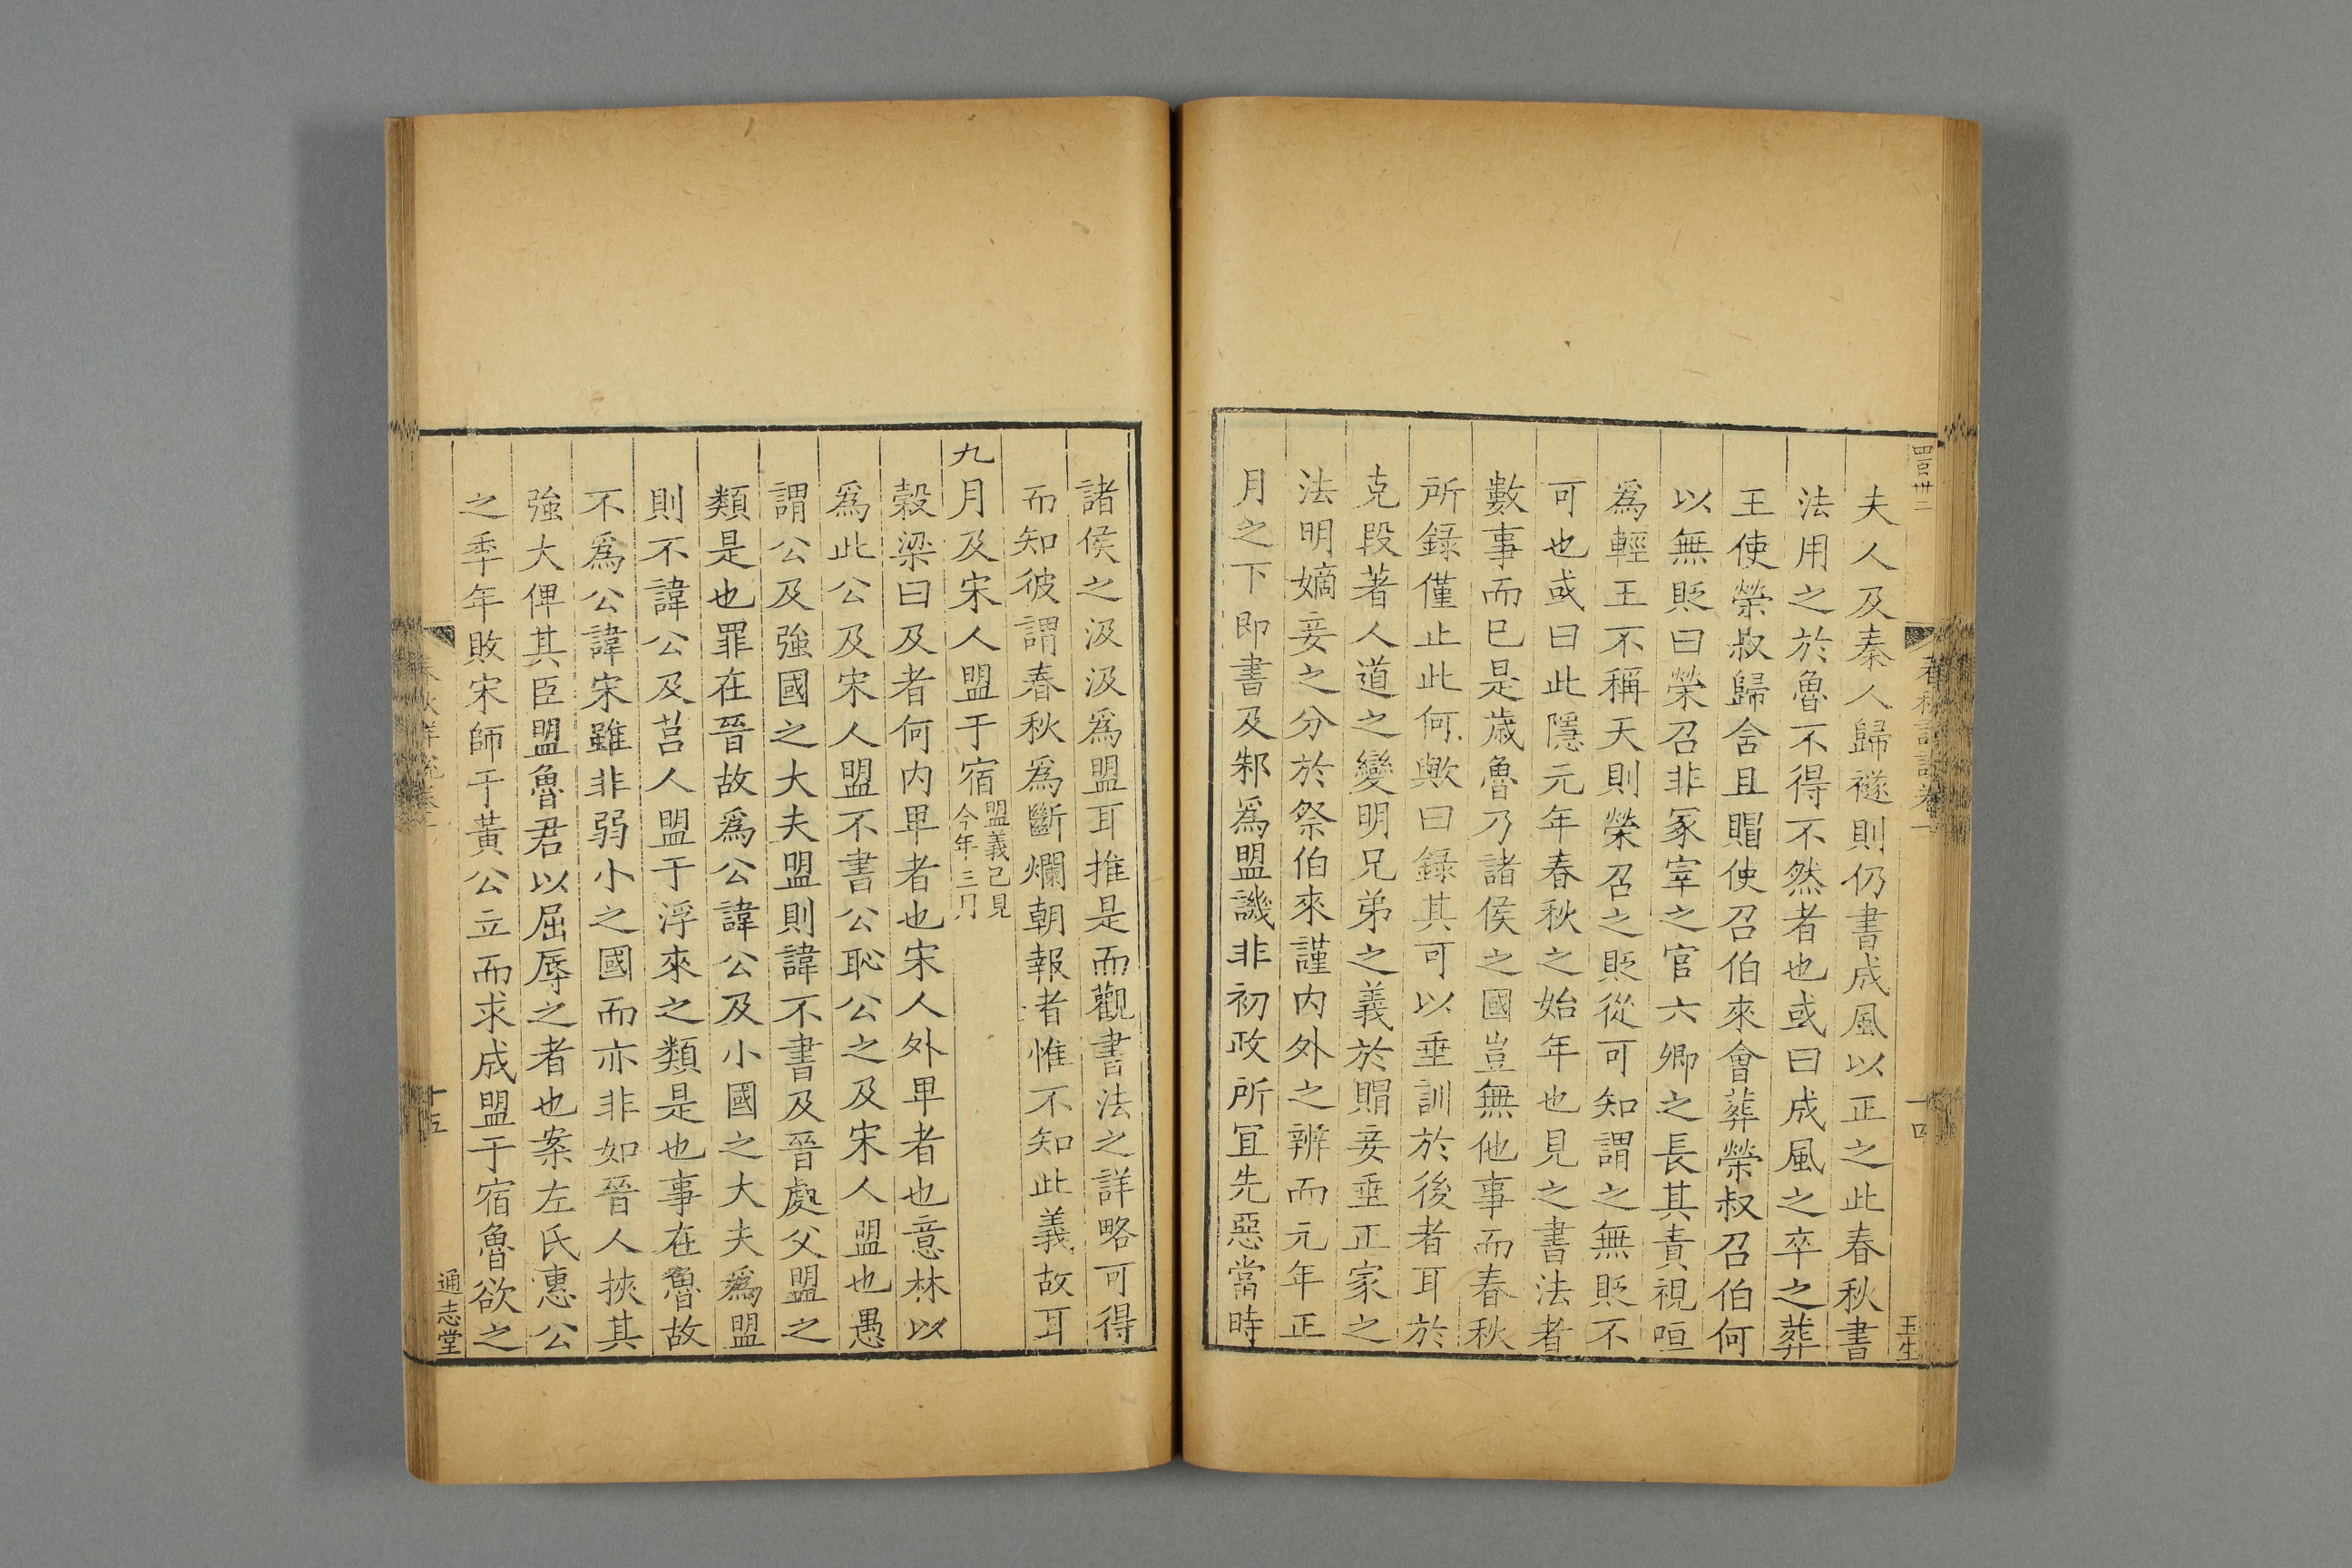 四百卅二
夫人及秦人歸襚則仍書成風以正之此春秋書
法用之於魯不得不然者也或曰成風之卒之葬
王使榮叔歸含且賵使召伯來會葬榮叔召伯何
以無貶曰榮召非冢宰之官六卿之長其責視咺
為輕王不稱天則榮召之貶從可知謂之無貶不
可也或曰此隱元年春秋之始年也見之書法者
數事而已是歲魯乃諸侯之國豈無他事而春秋
所錄僅止此何歟曰錄其可以垂訓於後者耳於
克段著人道之變明兄弟之義於賵妾垂正家之
法明嫡妾之分於祭伯來謹內外之辨而元年正
月之下即書及邾為盟譏非初政所宜先惡當時
諸侯之汲汲為盟耳推是而觀書法之詳略可得
而知彼謂春秋為斷爛朝報者惟不知此義故耳
九月及宋人盟于宿盟義已見今年三月
榖梁曰及者何內卑者也宋人外卑者也意林以
爲此公及宋人盟不書公恥公之及宋人盟也愚
謂公及強國之大夫盟則諱不書及晉處父盟之
類是也罪在晉故爲公諱公及小國之大夫爲盟
則不諱公及莒人盟于浮來之類是也事在魯故
不爲公諱宋雖非弱小之國而亦非如晉人挾其
強大俾其臣盟魯君以屈辱之者也案左氏惠公
之季年敗宋師于黃公立而求成盟于宿魯欲之
十五
通志堂